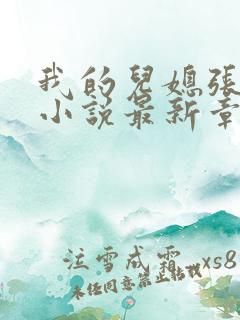 我的兒媳張
小说最新章
泣雪成霜 xs8
未经同意禁止转载